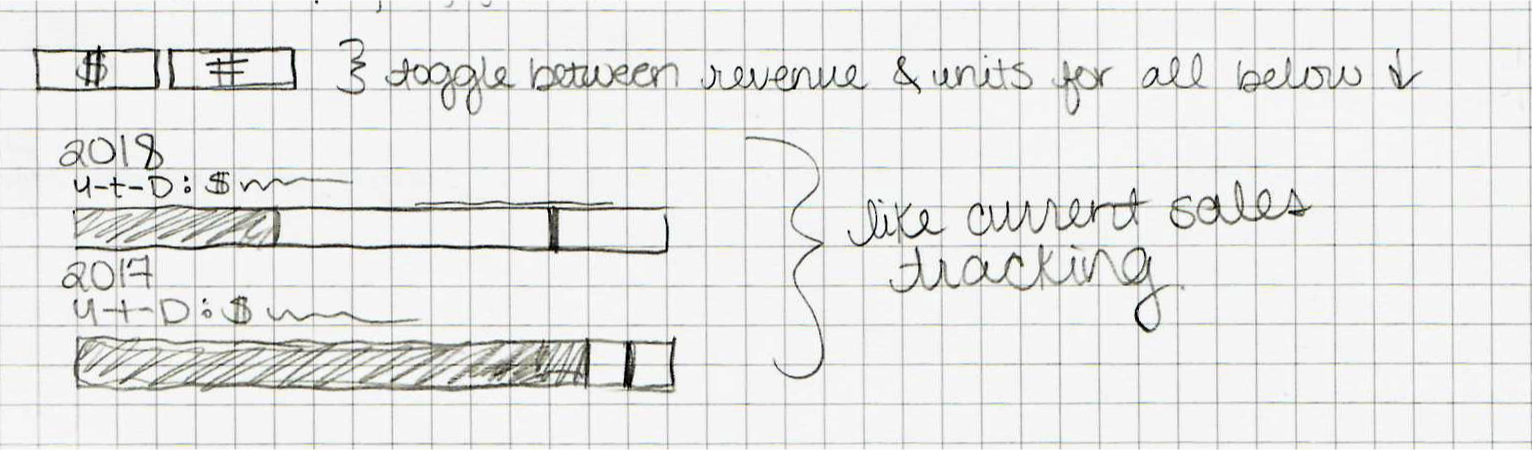 $ # } toggle between revenue & units for all below ↓
2018
Y-t-D: $
like current sales
tracking.
2017
Y-t-D: $